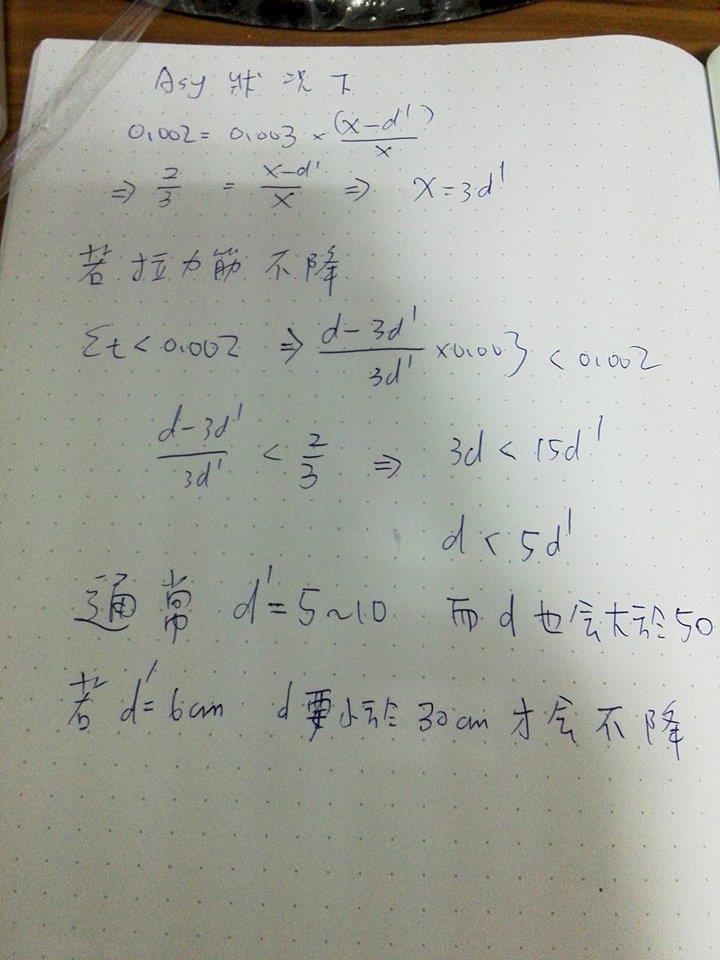 Asy 狀況下
0.002 = 0.003 × (x-d')/x
⇒ 2/3 = x-d'/x ⇒ x = 3d'
若拉力筋不降
εt < 0.002 ⇒ d-3d'/3d' ×0.003 < 0.002
d-3d'/3d' < 2/3 ⇒ 3d < 15d'
d < 5d'
通常 d' = 5~10 而 d 也会大於50
若 d' = 6cm d 要小於 30cm 才会不降